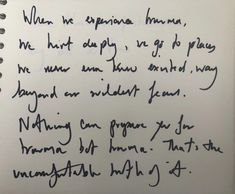 When we experience trauma,
we hurt deeply, we go to places
we never even knew existed, way
beyond our wildest fears.
Nothing can prepare you for
trauma but trauma. That's the
uncomfortable truth of it.